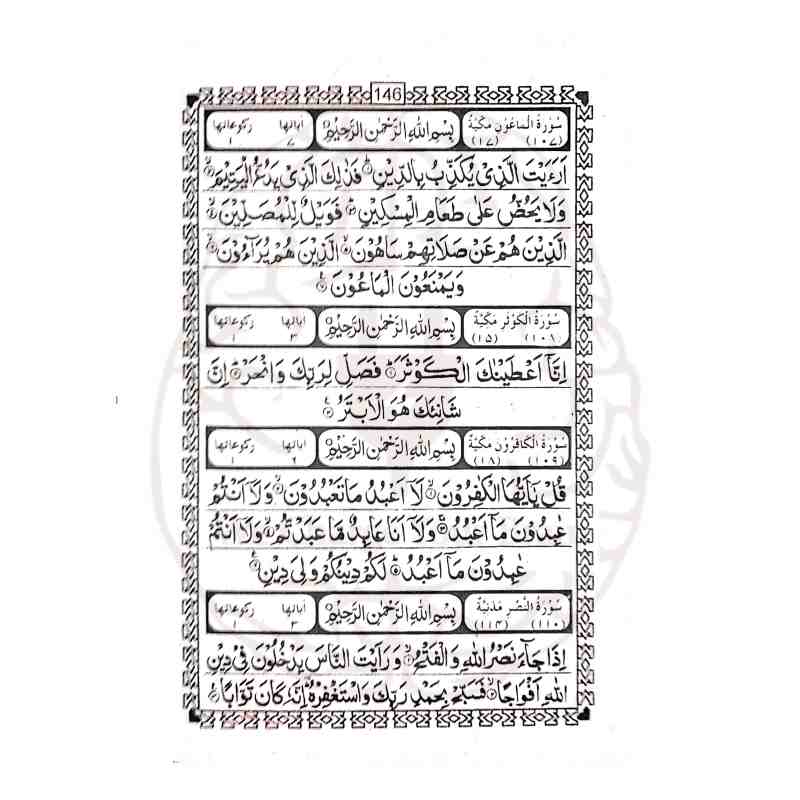 146
سُوْرَةُ الْمَاعُوْنِ مَكِّيَّةٌ بِسْمِ اللّٰهِ الرَّحْمٰنِ الرَّحِيْمِ اٰيَاتُهَا رُكُوْعَاتُهَا
(١٠٧) (١٧) ٧ ١
اَرَءَيْتَ الَّذِيْ يُكَذِّبُ بِالدِّيْنِ ۝ فَذٰلِكَ الَّذِيْ يَدُعُّ الْيَتِيْمَ ۝
وَلَا يَحُضُّ عَلٰى طَعَامِ الْمِسْكِيْنِ ۝ فَوَيْلٌ لِّلْمُصَلِّيْنَ ۝
الَّذِيْنَ هُمْ عَنْ صَلَاتِهِمْ سَاهُوْنَ ۝ الَّذِيْنَ هُمْ يُرَآءُوْنَ ۝
وَيَمْنَعُوْنَ الْمَاعُوْنَ ۝
سُوْرَةُ الْكَوْثَرِ مَكِّيَّةٌ بِسْمِ اللّٰهِ الرَّحْمٰنِ الرَّحِيْمِ اٰيَاتُهَا رُكُوْعَاتُهَا
(١٠٨) (١٥) ٣ ١
اِنَّآ اَعْطَيْنٰكَ الْكَوْثَرَ ۝ فَصَلِّ لِرَبِّكَ وَانْحَرْ ۝ اِنَّ
شَانِئَكَ هُوَ الْاَبْتَرُ ۝
سُوْرَةُ الْكَافِرُوْنَ مَكِّيَّةٌ بِسْمِ اللّٰهِ الرَّحْمٰنِ الرَّحِيْمِ اٰيَاتُهَا رُكُوْعَاتُهَا
(١٠٩) (١٨) ١
قُلْ يٰٓاَيُّهَا الْكٰفِرُوْنَ ۝ لَآ اَعْبُدُ مَا تَعْبُدُوْنَ ۝ وَلَآ اَنْتُمْ
عٰبِدُوْنَ مَآ اَعْبُدُ ۝ وَلَآ اَنَا عَابِدٌ مَّا عَبَدْتُّمْ ۝ وَلَآ اَنْتُمْ
عٰبِدُوْنَ مَآ اَعْبُدُ ۝ لَكُمْ دِيْنُكُمْ وَلِيَ دِيْنِ ۝
سُوْرَةُ النَّصْرِ مَدَنِيَّةٌ بِسْمِ اللّٰهِ الرَّحْمٰنِ الرَّحِيْمِ اٰيَاتُهَا رُكُوْعَاتُهَا
(١١٠) (١١٤) ٣ ١
اِذَا جَآءَ نَصْرُ اللّٰهِ وَالْفَتْحُ ۝ وَرَاَيْتَ النَّاسَ يَدْخُلُوْنَ فِيْ دِيْنِ
اللّٰهِ اَفْوَاجًا ۝ فَسَبِّحْ بِحَمْدِ رَبِّكَ وَاسْتَغْفِرْهُ ۚ اِنَّهٗ كَانَ تَوَّابًا ۝